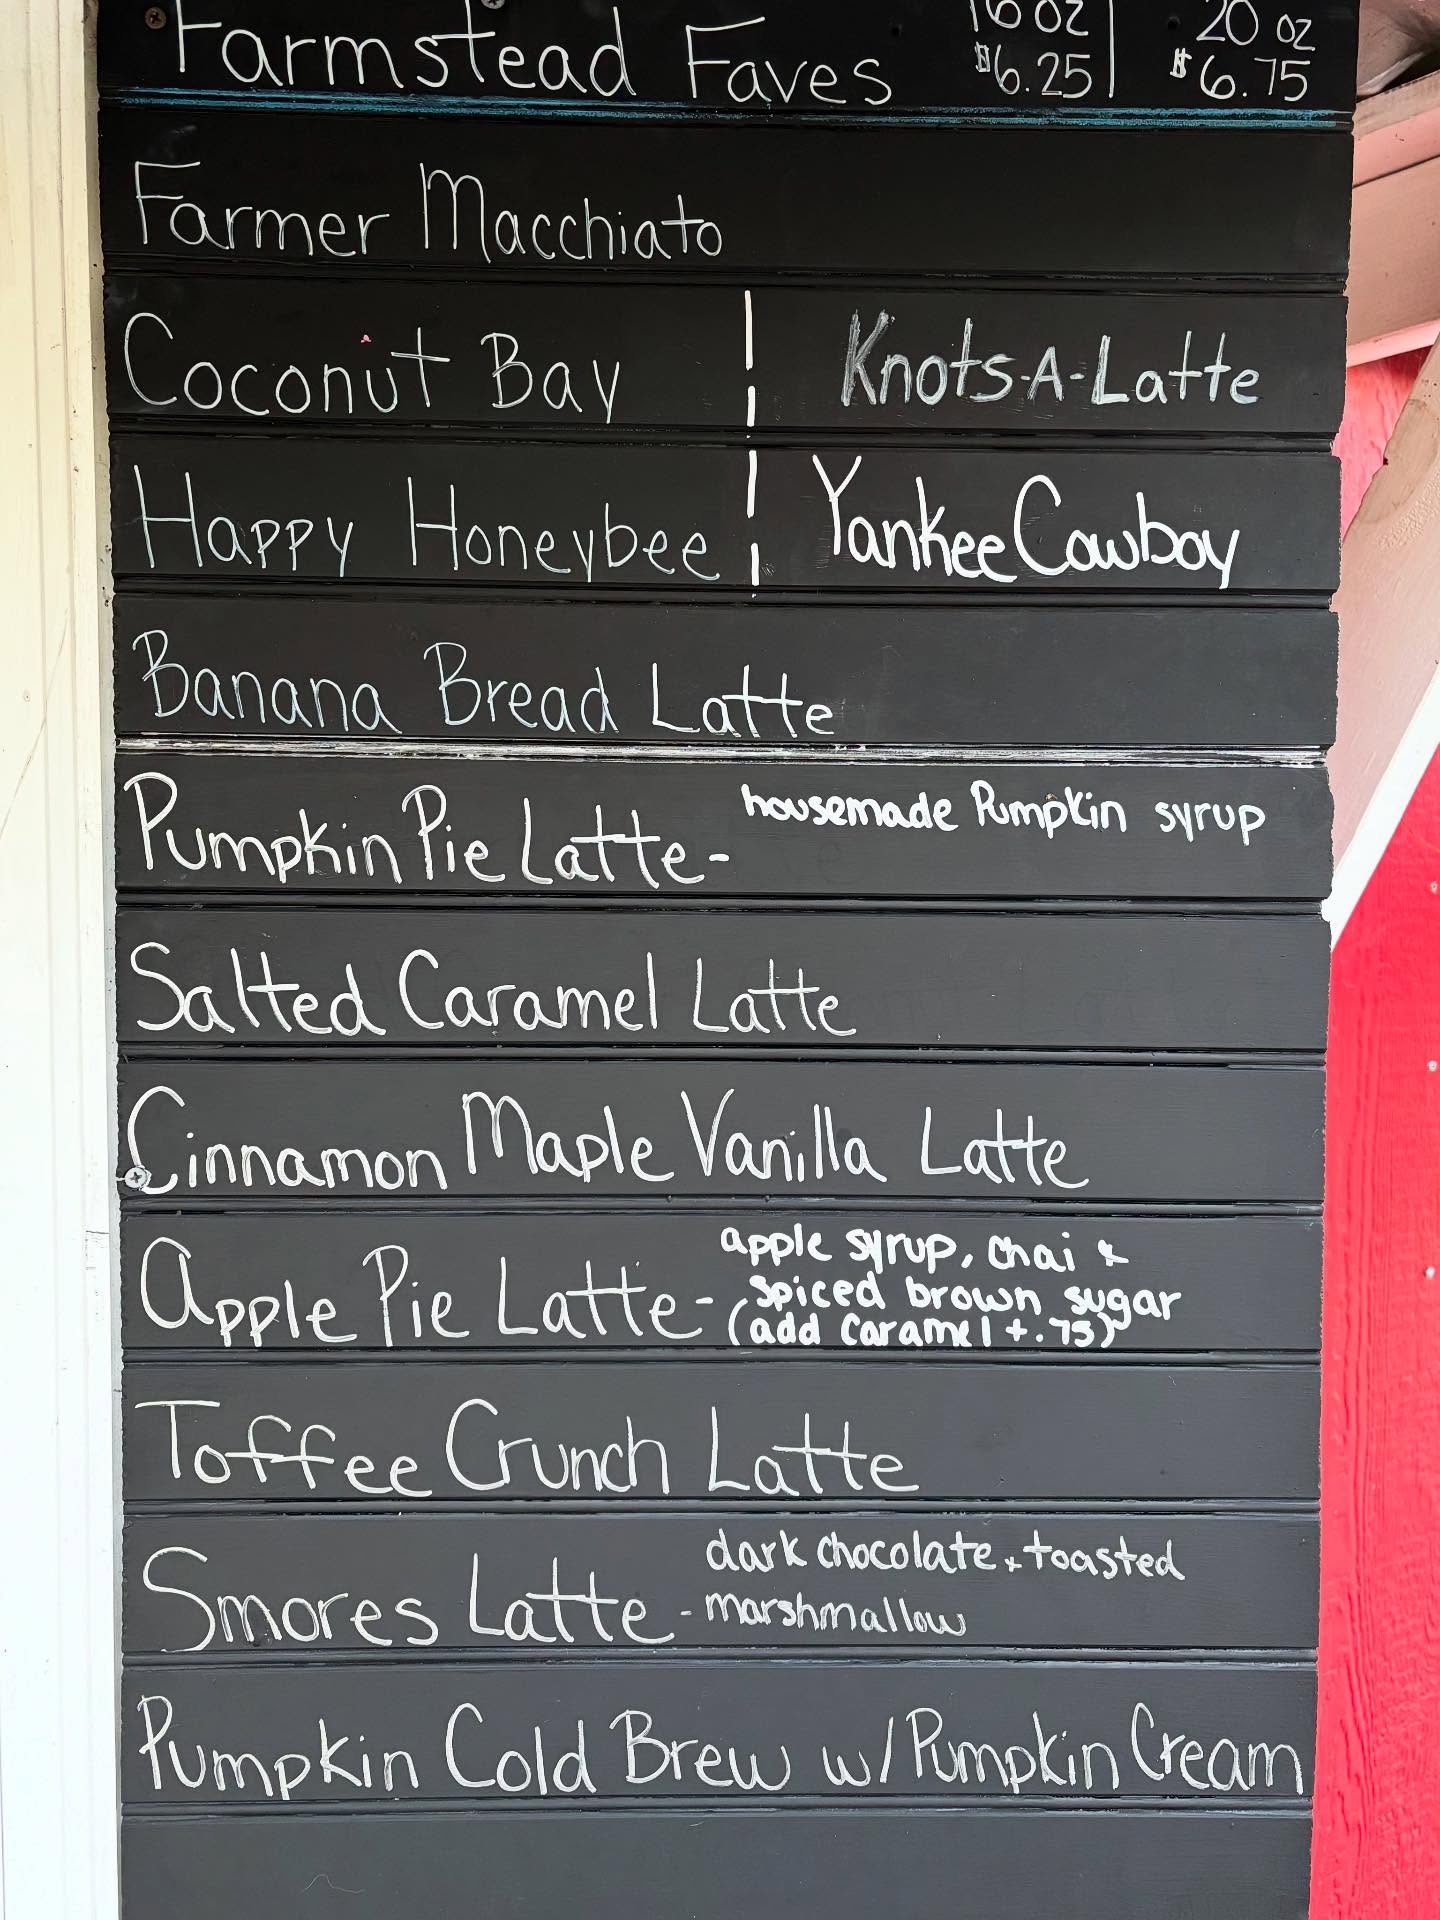 Farmstead Faves 16 oz $6.25 | 20 oz $6.75
Farmer Macchiato
Coconut Bay | Knots-A-Latte
Happy Honeybee | Yankee Cowboy
Banana Bread Latte
Pumpkin Pie Latte- housemade Pumpkin syrup
Salted Caramel Latte
Cinnamon Maple Vanilla Latte
Apple Pie Latte- apple syrup, chai &
spiced brown sugar
(add caramel +.75)
Toffee Crunch Latte
Smores Latte - dark chocolate & toasted
marshmallow
Pumpkin Cold Brew w/ Pumpkin Cream